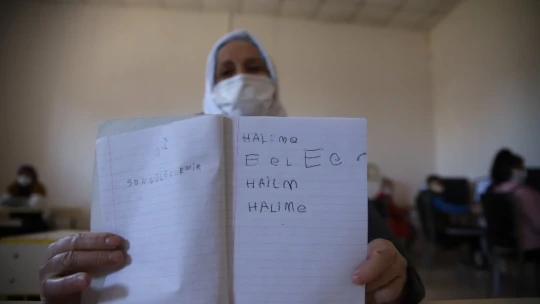 SONGÜL DEMİR
HALiMe
EeLEe
HAİLM
HALİMe